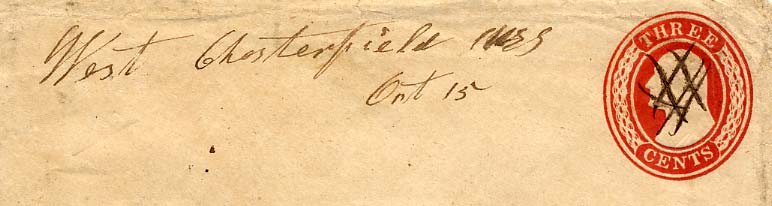 West Chesterfield Mss
Oct 15
THREE
CENTS